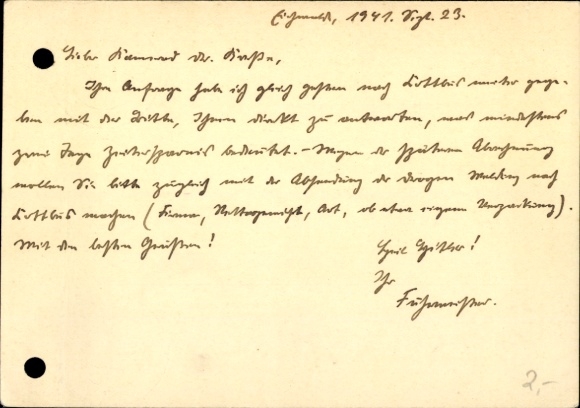 Eichwalde, 1941. Sept. 23.
Lieber Kamerad Dr. Kraße,
Ihre Anfrage habe ich gleich gestern nach Kottbus weiter gege-
ben mit der Bitte, Ihnen direkt zu antworten, was mindestens
zwei Tage Zeitersparnis bedeutet. - Wegen der späteren Abrechnung
wollen Sie bitte zugleich mit der Absendung der Drogen Meldung nach
Kottbus machen (Firma, Nettogewicht, Art, ob etwa eigene Verpackung).
Mit den besten Grüßen!
Heil Hitler!
Ihr
2,-